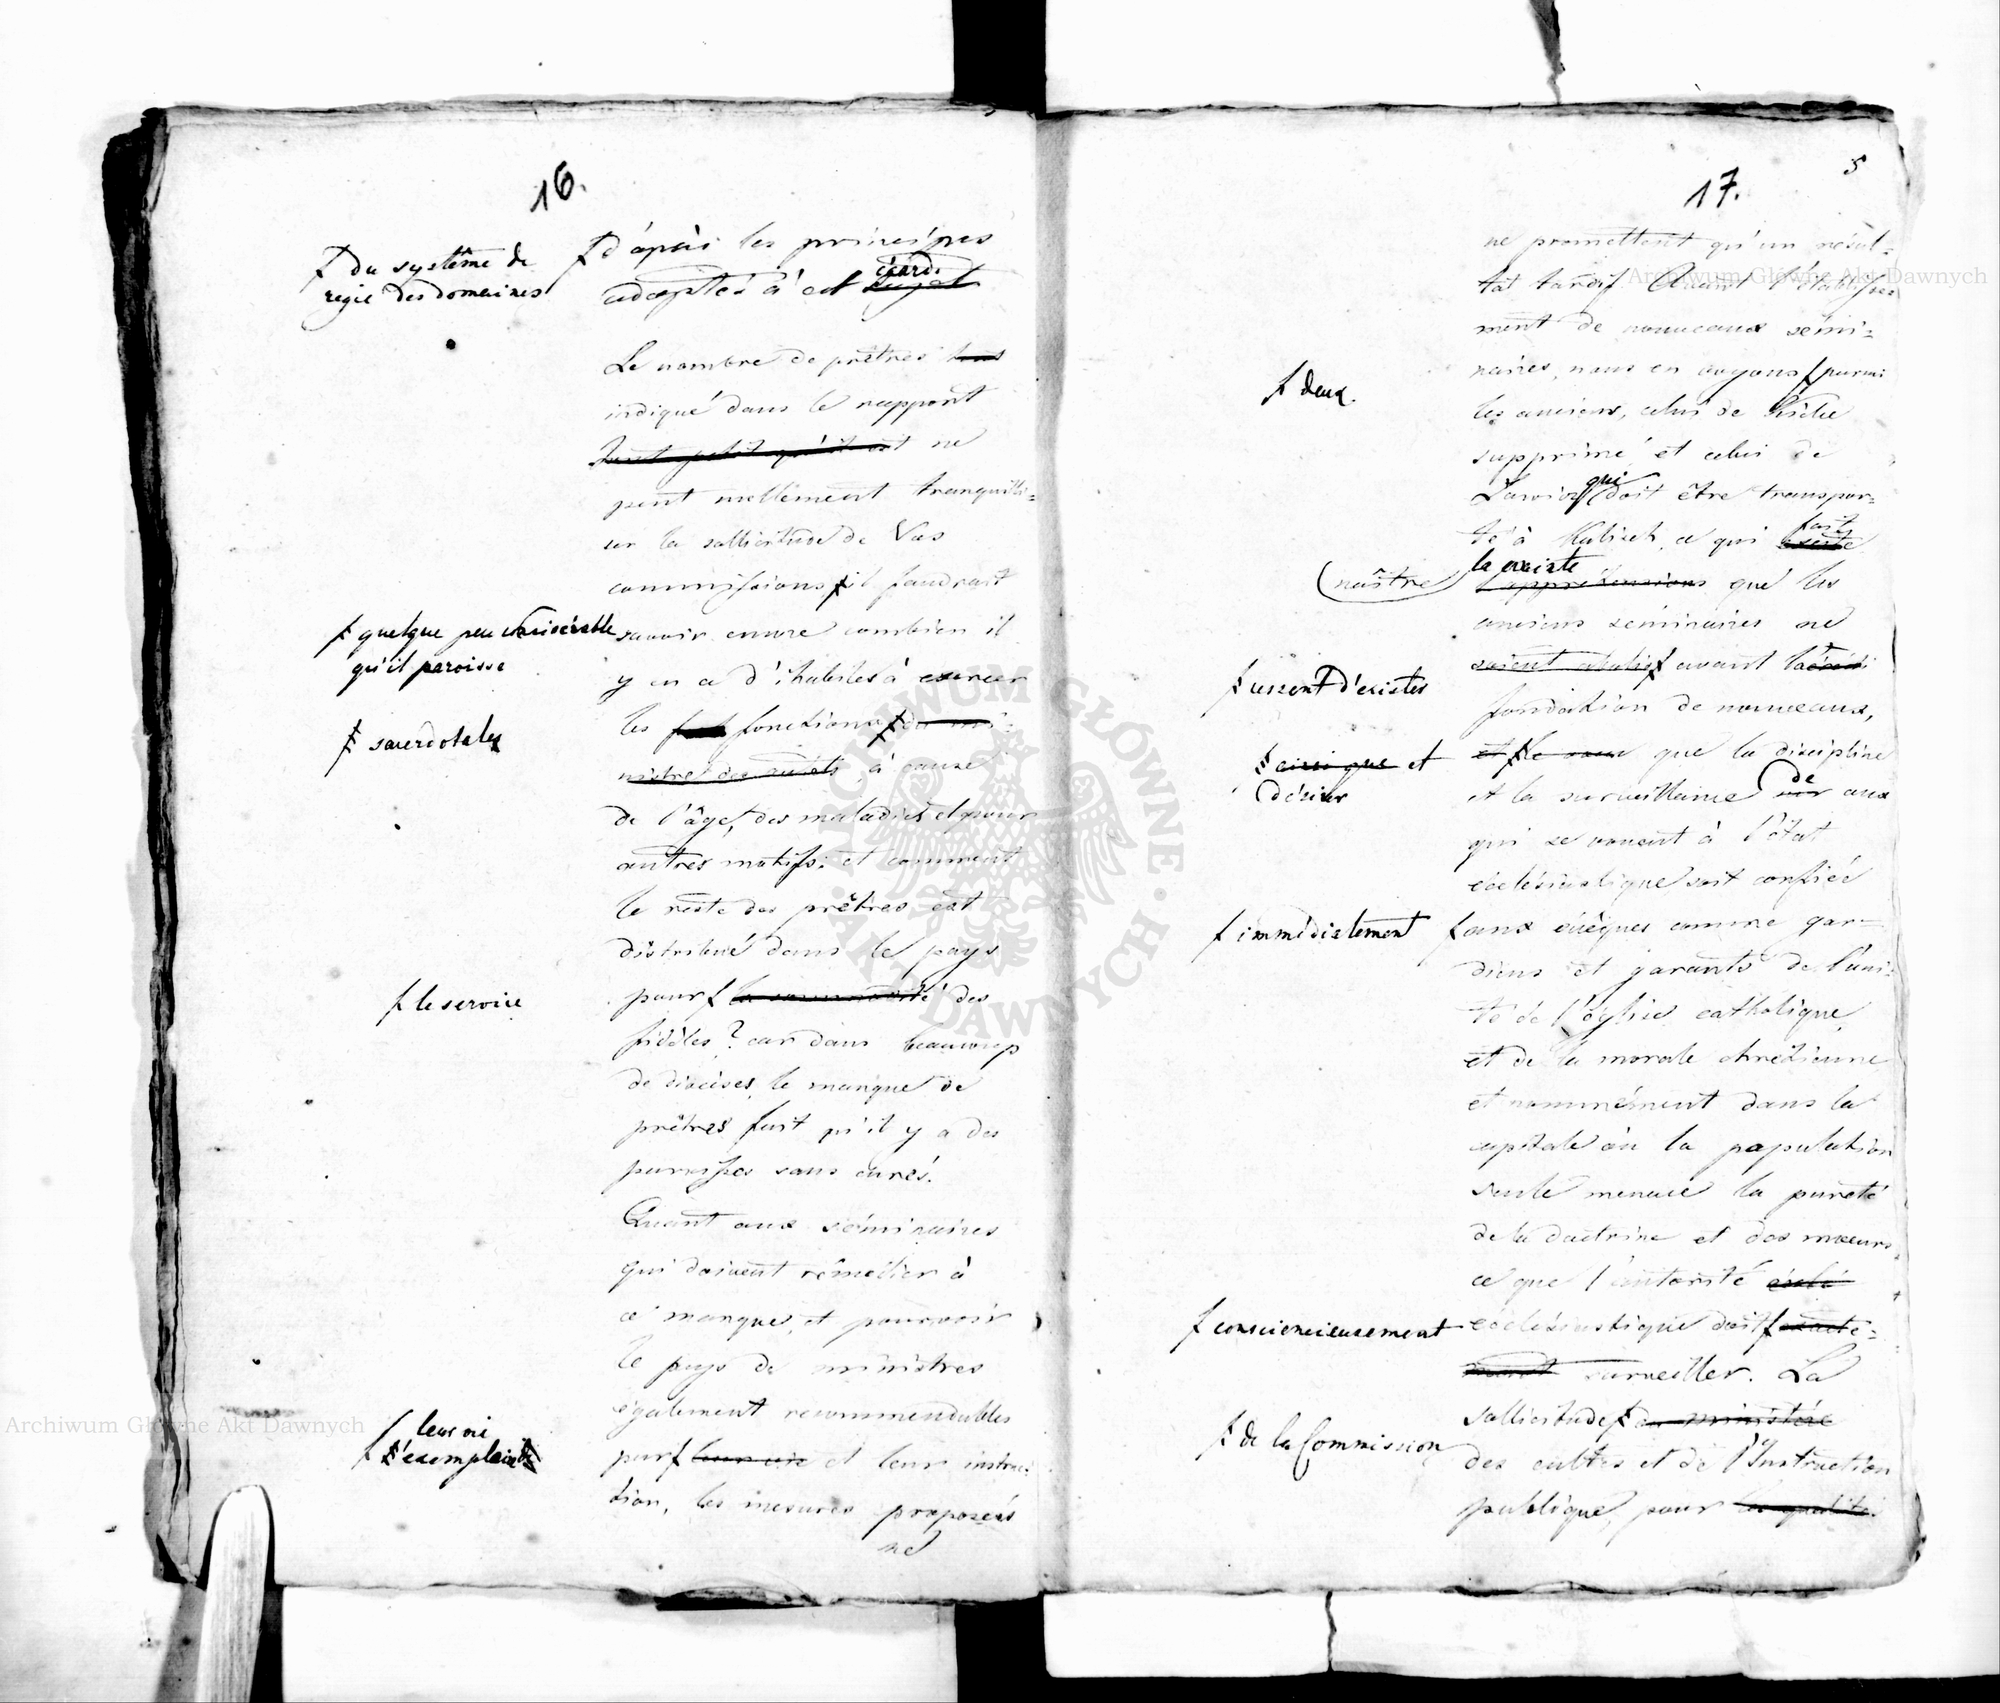 16.
ƒ du système de
régie des domaines
ƒ d'après les principes
adoptés à cet égard
sujet
Le nombre de prêtres
indiqué dans le rapport
tout petit qu'il est ne
peut nullement tranquilli=
ser la sollicitude de Vos
commissions, ƒ il faudrait
ƒ quelque peu considérable
qu'il paroisse
savoir encore combien il
y en a d'habiles à exercer
les fonctions ƒ
ƒ sacerdotales
à cause
de l'âge, des maladies et pour
autres motifs: et comment
le reste des prêtres est
distribué dans le pays
pour ƒ des
ƒ le service
fidèles? car dans beaucoup
de diocèses, le manque de
prêtres fait qu'il y a des
paroisses sans curés.
Quant aux séminaires
qui doivent rémédier à
ce manque, et pourvoir
le pays de ministres
également recommendables
par ƒ leur vie et leur instruc=
ƒ leur vie
exemplaire
tion, les mesures proposées
ne
17.
5
ne promettent qu'un résul=
tat tardif. Avant l'établisse
ment de nouveaux sémi=
naires, nous en voyons ƒ parmi
ƒ deux
les anciens, celui de Kielce
supprimé et celui de
Lowicz qui doit être transpor=
té à Kalisch, ce qui fait
(naître) la crainte
l'appréhension que les
anciens séminaires ne
soient abolis ƒ avant la
ƒ cessent d'exister
fondation de nouveaux,
et ƒ le que la discipline
ƒ ainsi que et
désirer
et la surveillance de ceux
qui se vouent à l'état
ecclésiastique soit confiée
ƒ aux évêques comme gar=
ƒ immédiatement
diens et garants de l'uni=
té de l'église catholique,
et de la morale chrétienne
et nommément dans la
capitale où la population
seule menace la pureté
de la doctrine et des mœurs,
ce que l'autorité
ecclésiastique doit ƒ exacte=
ƒ consciencieusement
ment surveiller. La
sollicitude ƒ du ministère
ƒ de la Commission
des cultes et de l'Instruction
publique, pour la qualité
Archiwum Główne Akt Dawnych
Archiwum Główne Akt Dawnych
ARCHIWUM GŁÓWNE AKT DAWNYCH